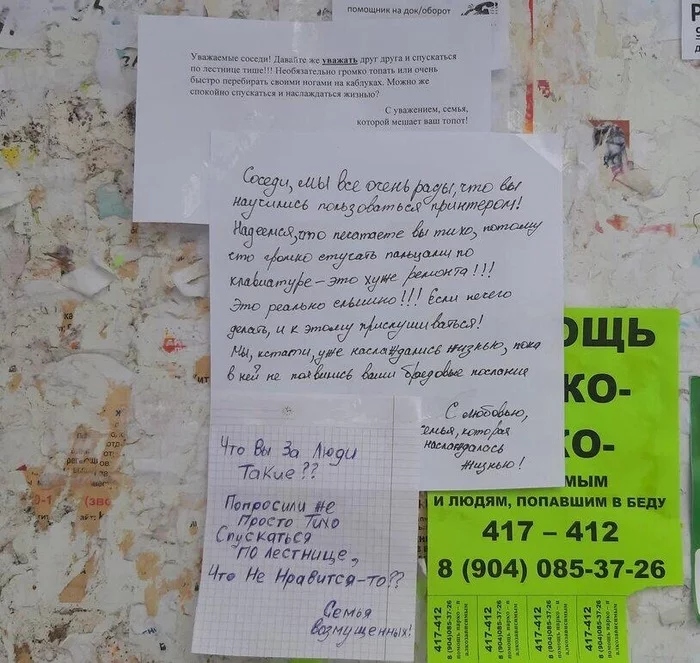 помощник на док/оборот
Уважаемые соседи! Давайте же уважать друг друга и спускаться
по лестнице тише!!! Необязательно громко топать или очень
быстро перебирать своими ногами на каблуках. Можно же
спокойно спускаться и наслаждаться жизнью?
С уважением, семья,
которой мешает ваш топот!
Соседи, мы все очень рады, что вы
научились пользоваться принтером!
Надеемся, что печатаете вы тихо, потому
что громко стучать пальцами по
клавиатуре – это хуже ремонта!!!
Это реально слышно!!! Если нечего
делать, и к этому прислушиваться!
Мы, кстати, уже наслаждались жизнью, пока
в ней не появились ваши бредовые послания
С любовью,
семья, которая
наслаждалось
жизнью!
Что Вы За Люди
Такие??
Попросили же
Просто Тихо
Спускаться
По лестнице,
Что Не Нравится-то??
Семья
возмущенных!
ОЩЬ
КО-
КО-
МЫМ
И ЛЮДЯМ, ПОПАВШИМ В БЕДУ
417 – 412
8 (904) 085-37-26
417-412
8(904)085-37-26
помощь нарко – и
алкозависимым
417-412
8(904)085-37-26
помощь нарко – и
алкозависимым
417-412
8(904)085-37-26
помощь нарко – и
алкозависимым
417-412
8(904)085-37-26
помощь нарко – и
алкозависимым